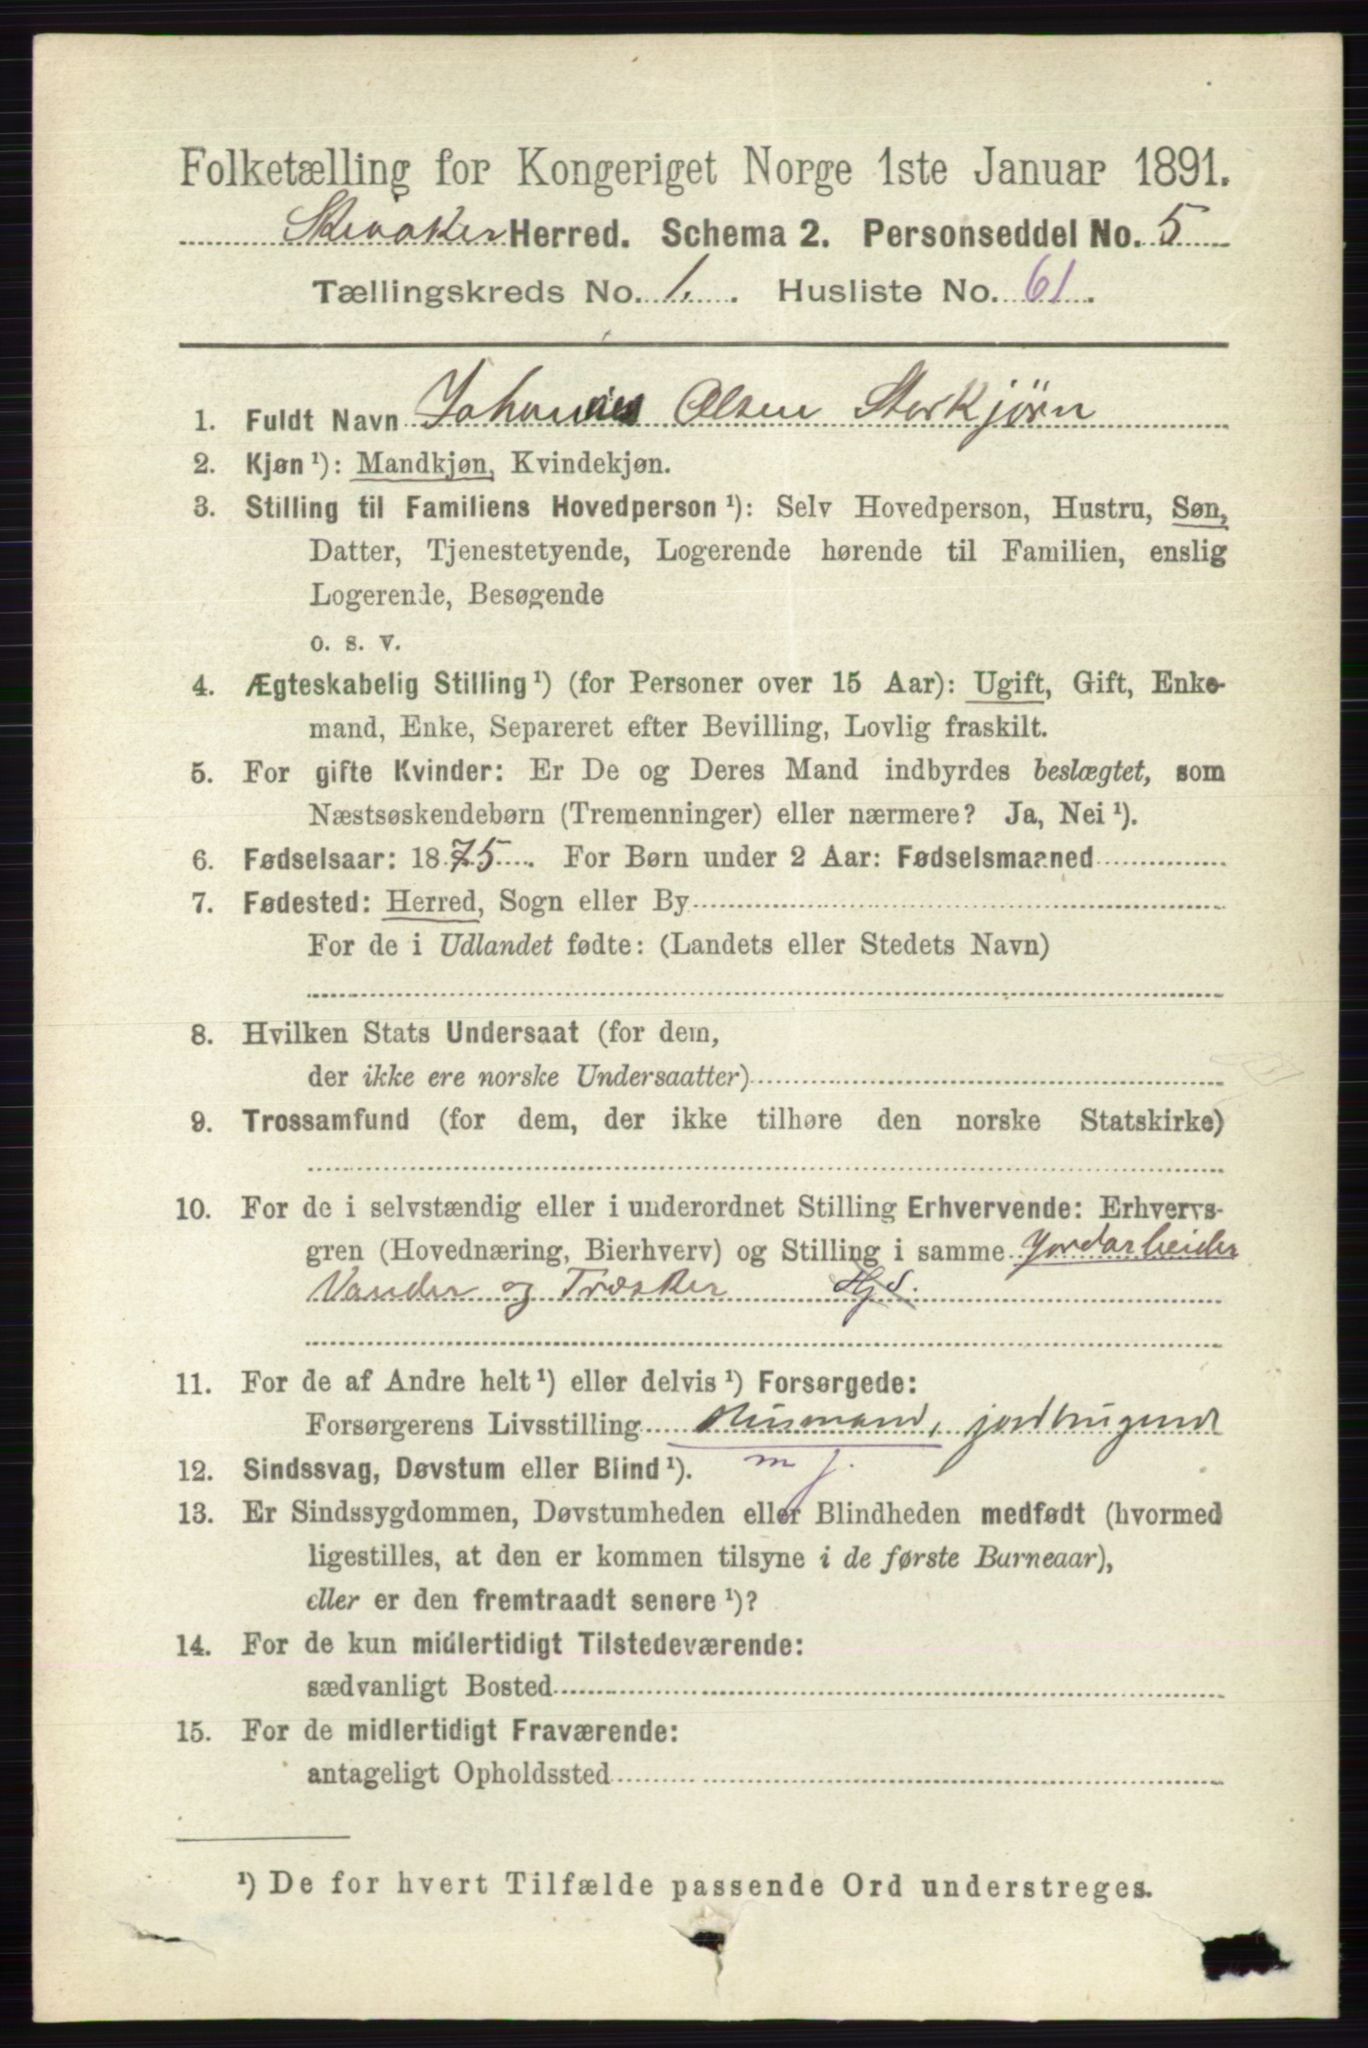 Folketælling for Kongeriget Norge 1ste Januar 1891.
Skeaker Herred. Schema 2. Personseddel No. 5
Tællingskreds No. 1. Husliste No. 61.
1. Fuldt Navn Johannes Olsen Storkjörn
2. Kjøn ¹): Mandkjøn, Kvindekjøn.
3. Stilling til Familiens Hovedperson ¹): Selv Hovedperson, Hustru, Søn,
Datter, Tjenestetyende, Logerende hørende til Familien, enslig
Logerende, Besøgende
o. s. v.
4. Ægteskabelig Stilling ¹) (for Personer over 15 Aar): Ugift, Gift, Enke-
mand, Enke, Separeret efter Bevilling, Lovlig fraskilt.
5. For gifte Kvinder: Er De og Deres Mand indbyrdes beslægtet, som
Næstsøskendebørn (Tremenninger) eller nærmere? Ja, Nei ¹).
6. Fødselsaar: 1875. For Børn under 2 Aar: Fødselsmaaned
7. Fødested: Herred, Sogn eller By
For de i Udlandet fødte: (Landets eller Stedets Navn)
8. Hvilken Stats Undersaat (for dem,
der ikke ere norske Undersaatter)
9. Trossamfund (for dem, der ikke tilhøre den norske Statskirke)
10. For de i selvstændig eller i underordnet Stilling Erhvervende: Erhvervs-
gren (Hovednæring, Bierhverv) og Stilling i samme Jordarbeider
Vander og Træsker HjS.
11. For de af Andre helt ¹) eller delvis ¹) Forsørgede:
Forsørgerens Livsstilling Husmand, jordbrugende
m j.
12. Sindssvag, Døvstum eller Blind ¹).
13. Er Sindssygdommen, Døvstumheden eller Blindheden medfødt (hvormed
ligestilles, at den er kommen tilsyne i de første Barneaar),
eller er den fremtraadt senere ¹)?
14. For de kun midlertidigt Tilstedeværende:
sædvanligt Bosted
15. For de midlertidigt Fraværende:
antageligt Opholdssted
¹) De for hvert Tilfælde passende Ord understreges.